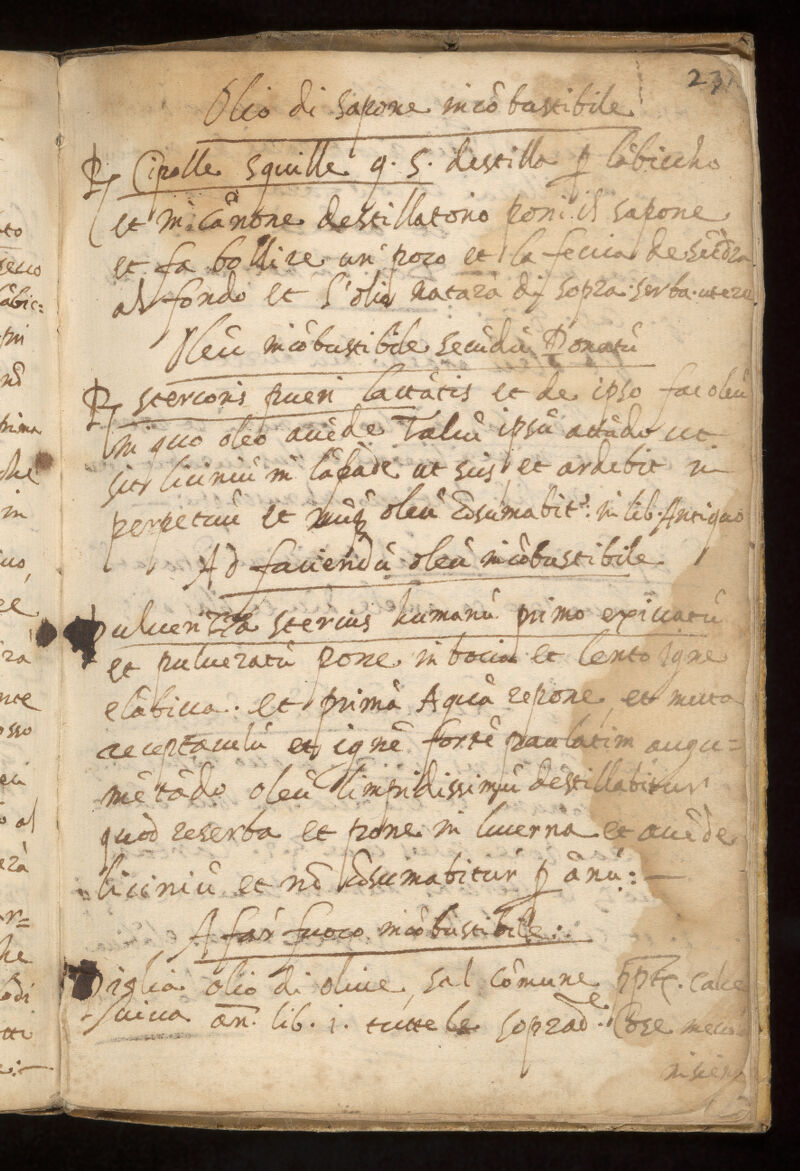 23
Olio di sapone incõbustibile
℞ Cipolle squille q. s. destilla ꝑ lãbiccho
et in cãnone destillatorio poni il sapone
et fa bollire un' poco et la feccia descẽdra
al fondo et l'olio natarà di sopra serba utere
Oleũ incõbustibile secũdũ Donatũ
℞ stercoris pueri lactãtis et de ipso fac oleũ
in quo oleo accẽde Talcũ ipsũ actãdo ut
sit liciniũ in lãpade ut scis et ardebit in
perpetuũ et nũq oleũ cõsumabit.ʳ in lib. Antiquo
Ad faciendũ oleũ incõbustibile
Pulverizza stercus humanũ primo exiccatũ
et pulveratũ pone in bocia et lento igne
elãbicca. et primã Aquã repone, et muta
receptaculũ et ignẽ fortẽ paulatim augu=
mẽtãdo oleũ limpidissimũ destillabitur
quod reserba et pone in lucerna et accẽde
liciniũ et nõ cõsumabitur ꝑ ãnũ: —
A far fuoco incõbustibile:
Piglia olio di olive, sal cõmune, calce
vivva an. lib. i. tutte le soprad.ᵉ cose